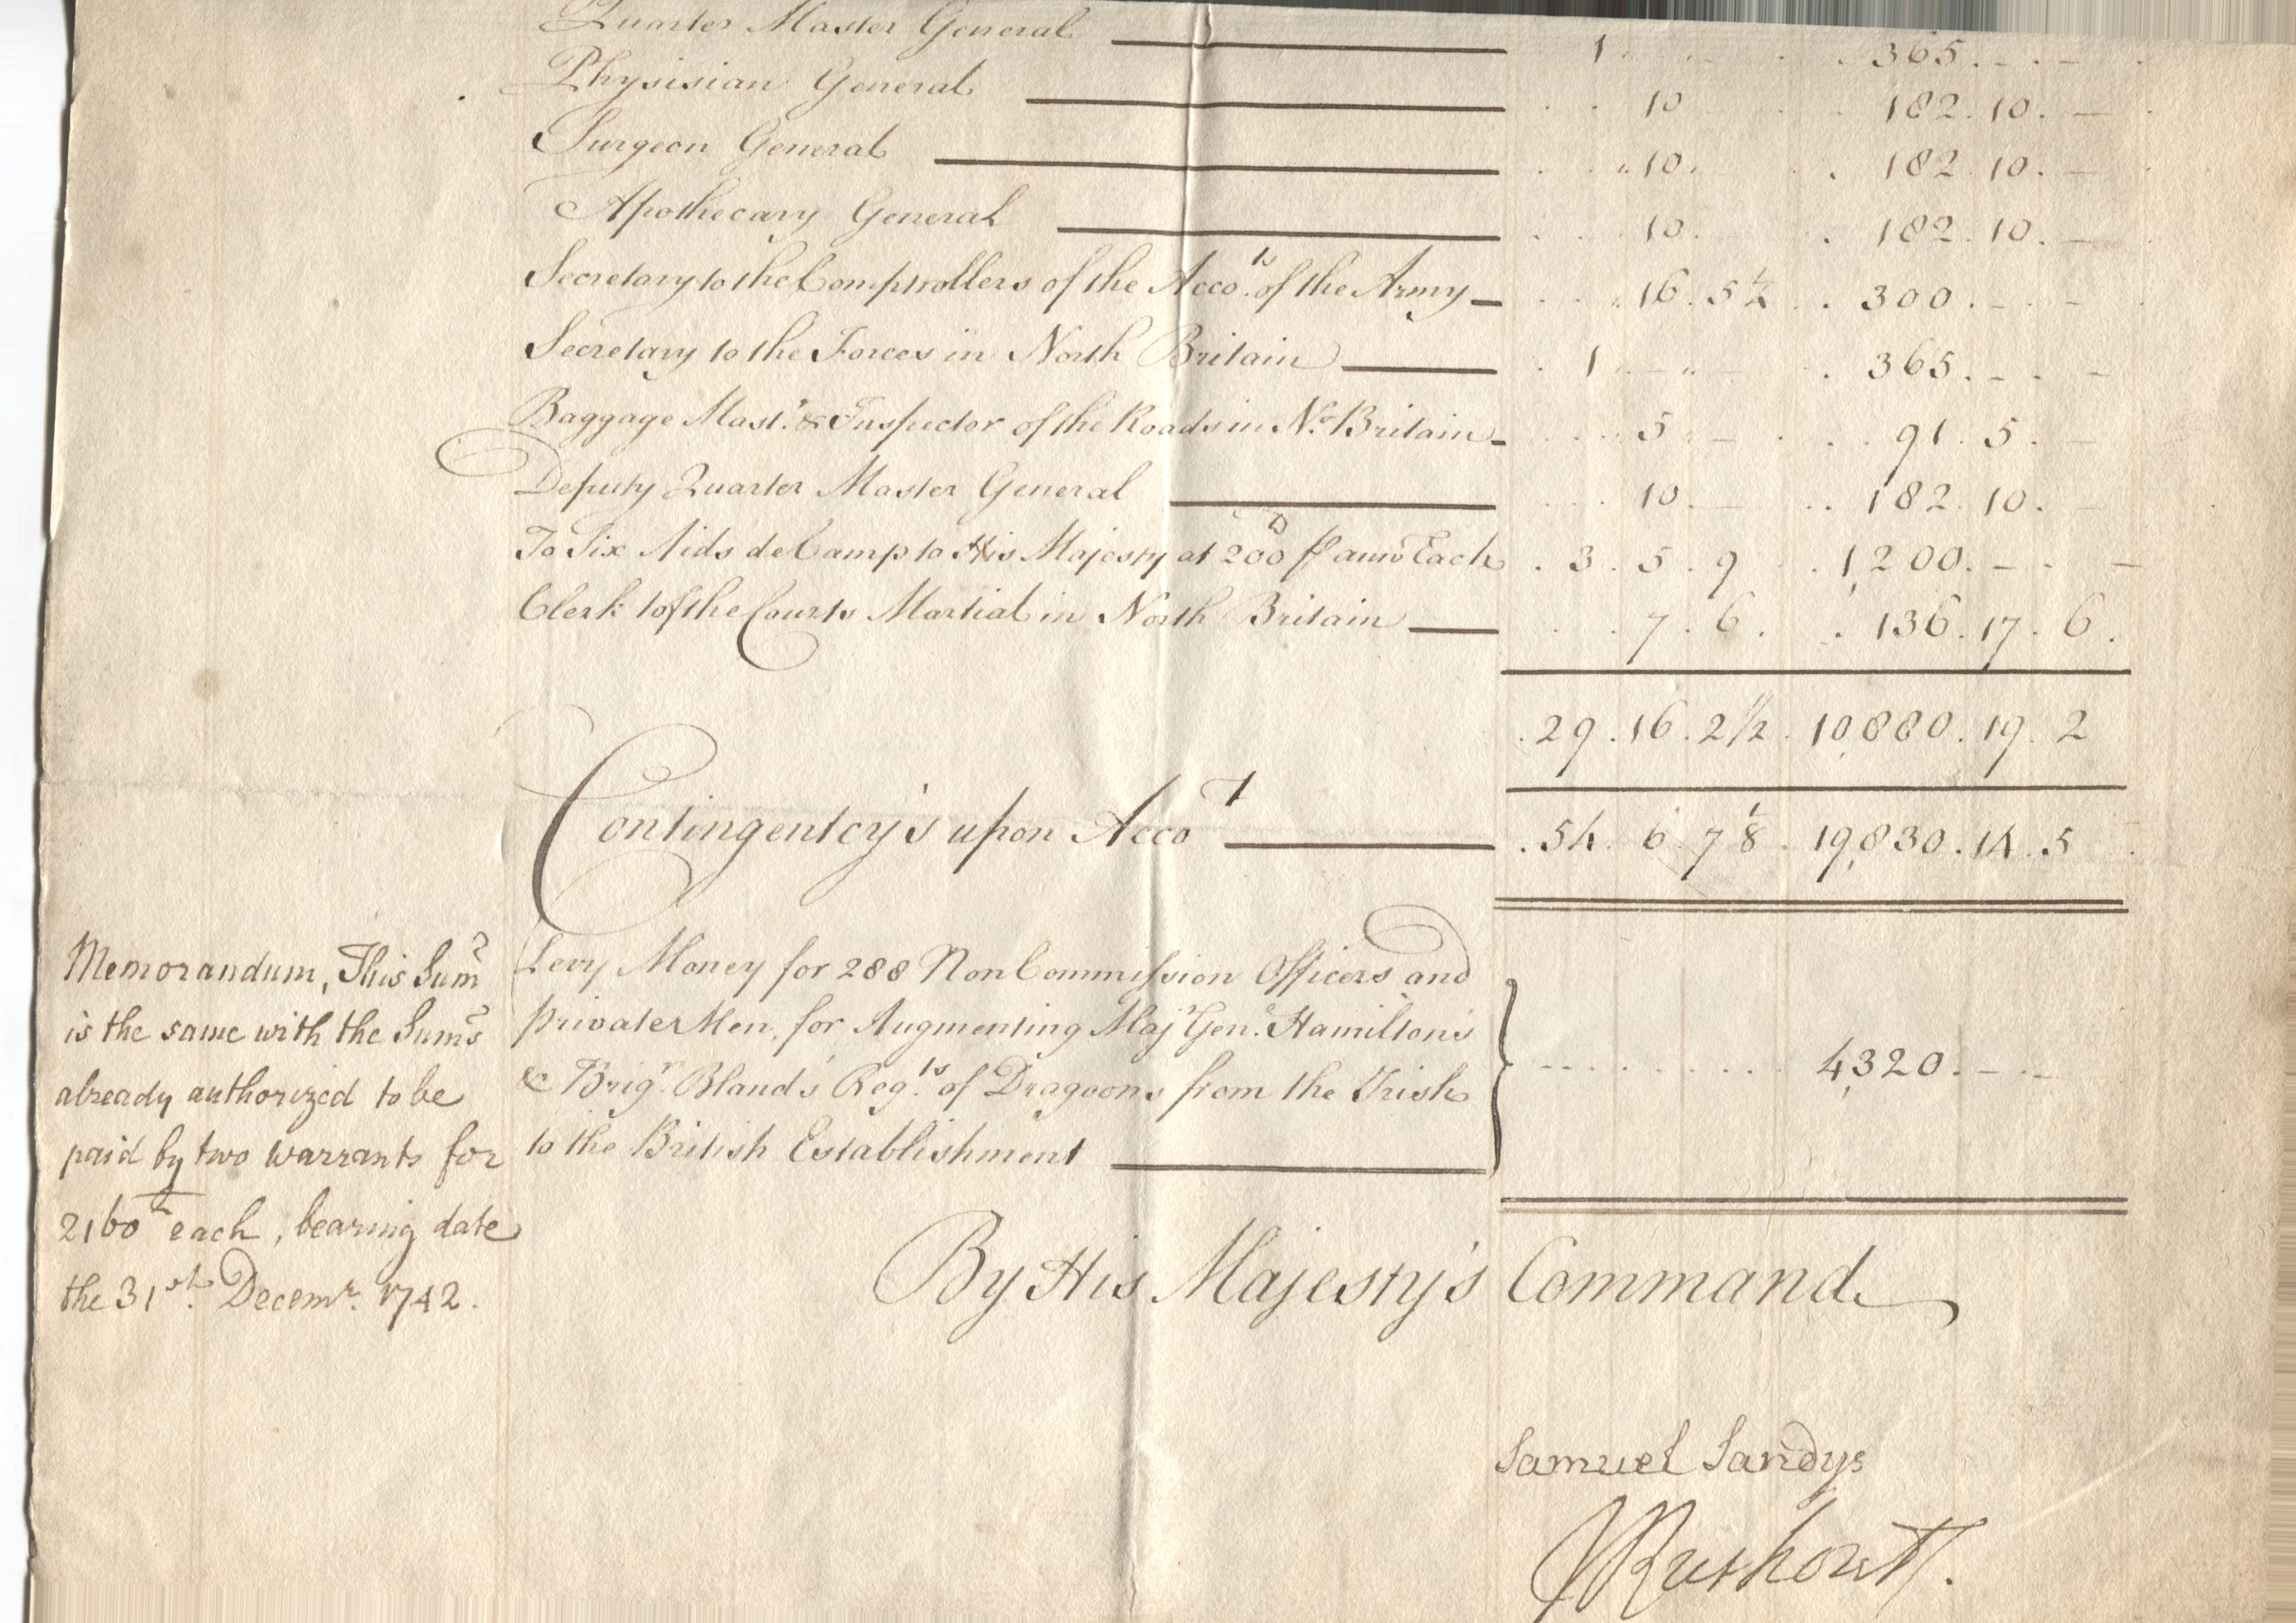 Quarter Master General 1 365. - . -
Physisian General 10 182. 10. -
Surgeon General 10 182. 10. -
Apothecary General 10. 182. 10. -
Secretary to the Comptrollers of the Acco.ts of the Army 16. 5 1/4 300. - . -
Secretary to the Forces in North Britain 1 . - . - 365. - . -
Baggage Mast.r & Inspector of the Roads in No. Britain 5 - 91. 5. -
Deputy Quarter Master General 10. - 182. 10. -
To Six Aids de Camp to His Majesty at 200 £ ⅌ ann.o Each 3. 5. 9 1,200. - . -
Clerk to of the Courts Martial in North Britain 7. 6. 136. 17. 6.
29. 16. 2 1/2 10,880. 19. 2
Contingentcy's upon Acco.t 54. 6. 7 1/8 19,830. 14. 5
Levy Money for 288 Non Commission Officers and
private Men, for Augmenting Maj.r Gen.l Hamilton's
& Brig.r Bland's Reg.ts of Dragoons from the Irish 4,320. - . -
to the British Establishment
Memorandum, This Sum
is the same with the Sums
already authorized to be
paid by two warrants for
2160£ each, bearing date
the 31st. Decemr. 1742.
By His Majesty's Command
Samuel Sandys
JRushout.